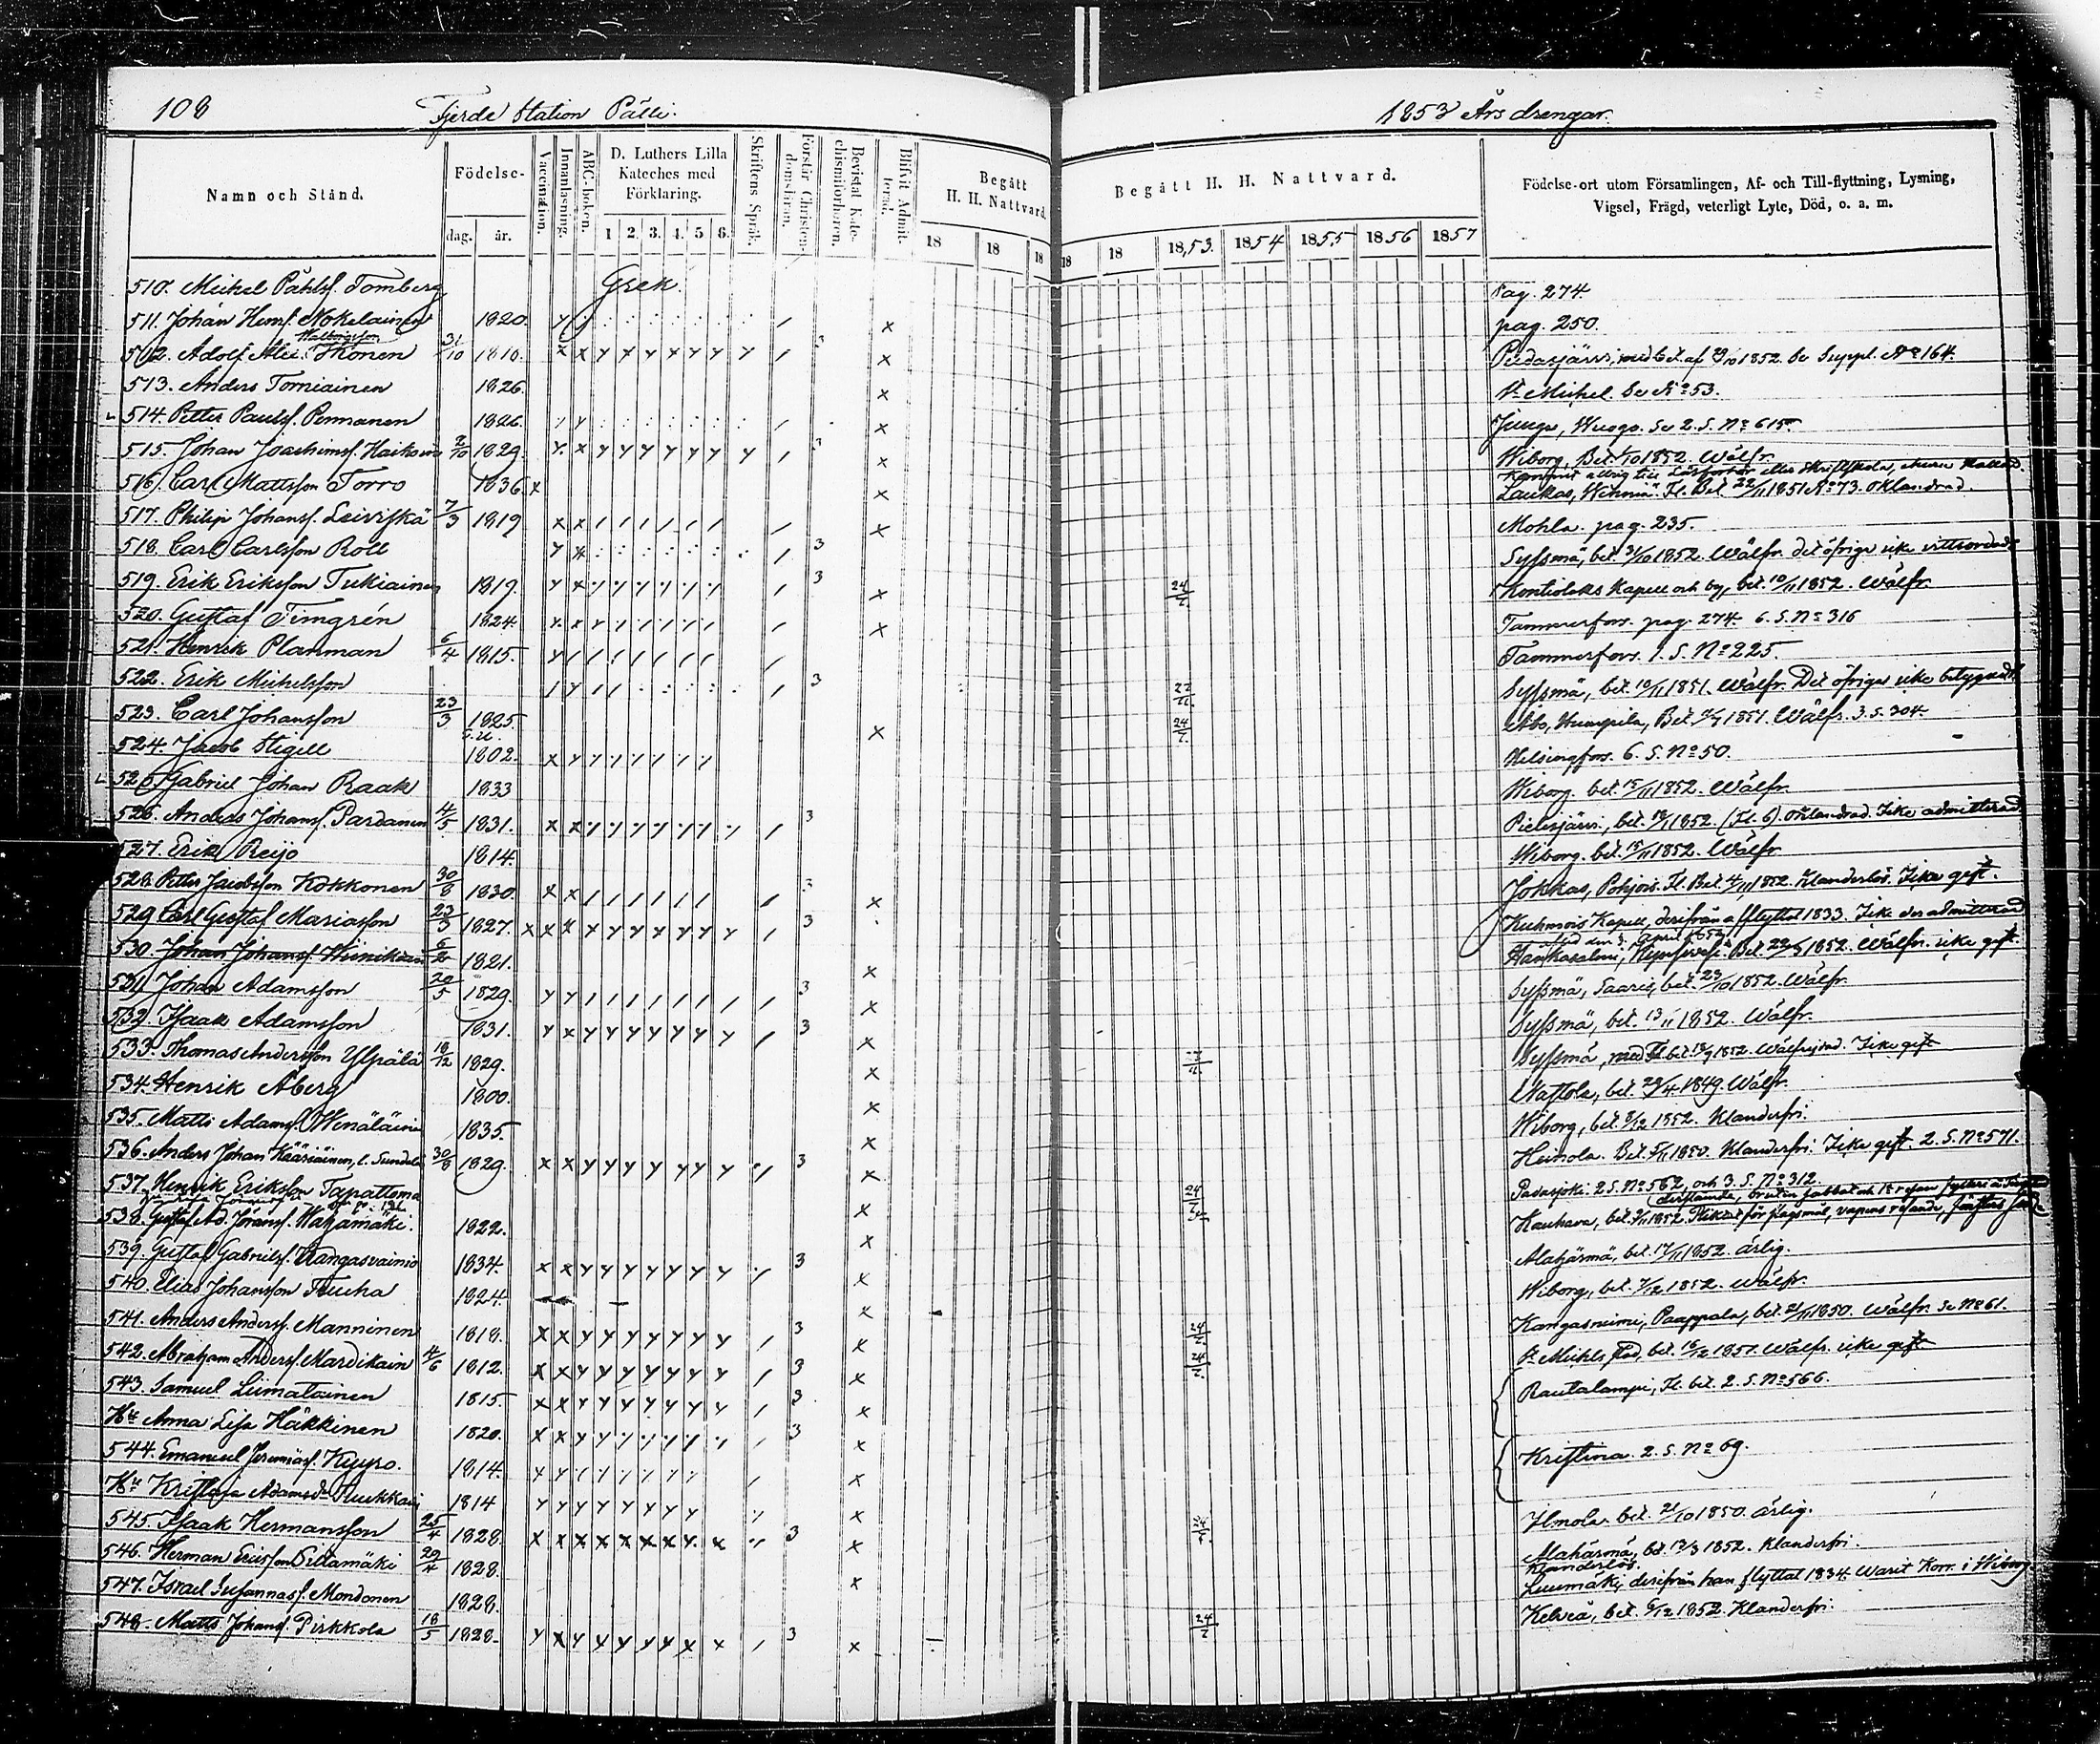 108 Fjerde Station Pälli.
1853 Års drengar.
Namn och Stånd.
Födelse-
dag. år.
Vaccination.
Innanläsning.
ABC-boken.
D. Luthers Lilla
Kateches med
Förklaring.
1 2. 3. 4. 5 6.
Skriftens Språk.
Förstår Christen-
domsläran.
Bevistat Kate-
chismiförhören.
Blifvit Admit-
terad.
Begått
H. H. Nattvard.
18 18 18
Begått H. H. Nattvard.
18 18 18,53. 1854 1855 1856 1857
Födelse-ort utom Församlingen, Af- och Till-flyttning, Lysning,
Vigsel, Frägd, veterligt Lyte, Död, o. a. m.
510. Michel Påhlsf. Tomberg Grek. Pag. 274.
511. Johan Hemf. Nokelainen 1820. pag. 250.
512. Adolf Alex. Ikonen 31/10 1810. 1852. Se Suppl. No 164.
513. Anders Torniainen 1826. St Michel. Se No 53.
514. Petter Paulsf. Pennanen 1826. Se 2. S. No 615.
515. Johan Joachimsf. Haikoin 2/10 1829. Wiborg, Bet. 1852. Wälfr.
516. Carl Mattsson Torro 1836. Laukas, Fl. Bet. 22/11 1851 No 73. oklandrad.
517. Philip Johansf. Leiviskä 7/3 1819 Mohla. pag. 235.
518. Carl Carlsson Roll Syssmä, bet. 1852. Wälfr. det öfriga icke vittsordadt
519. Erik Eriksson Tukiainen 1819. 24/7. Kontiolaks Kapell och by, bet. 10/11 1852. Wälfr.
520. Gustaf Timgrén 1824. Tammerfors. pag. 274. 6. S. No 316
521. Henrik Planman 6/4 1815. Tammerfors. 1. S. No 225.
522. Erik Michelsson Syssmä, bet. 10/11 1851. Wälfr. Det öfriga icke betygadt
523. Carl Johansson 23/3 1825. 24/7. Åbo, Humpila, Bet. 1851. Wälfr. 3. S. 304.
524. Jacob Stigell 1802. Helsingfors. 6. S. No 50.
525. Gabriel Johan Raak 1833 Wiborg. bet. 15/11 1852. Wälfr.
526. Anders Johansf. Pardanen 4/5 1831. Pielisjärvi, bet. 1852. (Fl. 6). oklandrad. Icke admitterad
527. Erik Reijo 1814. Wiborg. bet. 15/11 1852. Wälfr
528. Petter Jacobsson Kokkonen 30/8 1830. Jokkas, Pohjois. Fl. Bet. 4/11 1852. Klanderlös. Icke gift.
529 Carl Gustaf Mariasson 23/3 1827. Kuhmois Kapell, derifrån afflyttat 1833. Icke der admitterad
530. Johan Johansf. Hiinikäinen 1821. Hankasalmi, 1852. Wälfr. icke gift.
531. Johan Adamsson 20/5 1829. Syssmä, Saaris, bet. 23/10 1852. Wälfr.
532. Isaak Adamsson 1831. Syssmä, bet. 13/11 1852. Wälfr.
533. Thomas Andersson Ylipälä 18/12 1829. Syssmä, med Fl. bet. 1852. Wälfrejdad. Icke gift
534. Henrik Åberg 1800. Nastola, bet. 29/4. 1849. Wälfr.
535. Matts Adamsf. Wenäläinen 1835. Wiborg, bet. 1852. Klanderfri.
536. Anders Johan Kääriäinen, l. Sundela 30/8 1829. Heinola. Bet. 1850. Klanderfri. Icke gift. 2. S. No 571.
537. Henrik Eriksson Tapattoma 24/7 Padasjoki. 2 S. No 562, och 3. S. No 312.
538. Gustaf Ad. Jöransf. Wazamäki. 1822. Kauhava, bet. 1852.
539. Gustaf Gabrielsf. Kangasvainio 1834. Alahärmä, bet. 17/11 1852. ärlig.
540. Elias Johansson Tiucha 1824. Wiborg, bet. 7/12 1852. Wälfr.
541. Anders Andersf. Manninen 1818. 24/7. Kangasniemi, Paappala, bet. 21/11 1850. Wälfr. Se No 61.
542. Abraham Andersf. Mardikain 4/6 1812. 24/7. St Michels Stad, bet. 1851. Wälfr. icke gift
543. Samuel Liimatainen 1815. Rautalampi, Fl. bet. 2. S. No 566.
Hu Anna Lisa Häkkinen 1820.
544. Emanuel Jeremiasf. Kyyrö. 1814. Kristina 2. S. No 69.
Hu Kristina Adamsdr 1814
545. Isaak Hermansson 25/4 1828. 24/7. Ilmola. bet. 21/10 1850. ärlig.
546. Herman Ericsson Siltamäki 29/4 1828. Alahärmä, bet. 1852. Klanderfri.
547. Israel Susannasf. Mondonen 1828. Klanderlös. Luumäki, derifrån han flyttat 1834. Warit Korr. i Wiborg
548. Matts Johansf. Pirkkola 18/5 1828. 24/7 Kelviå, bet. 1852. Klanderfri.